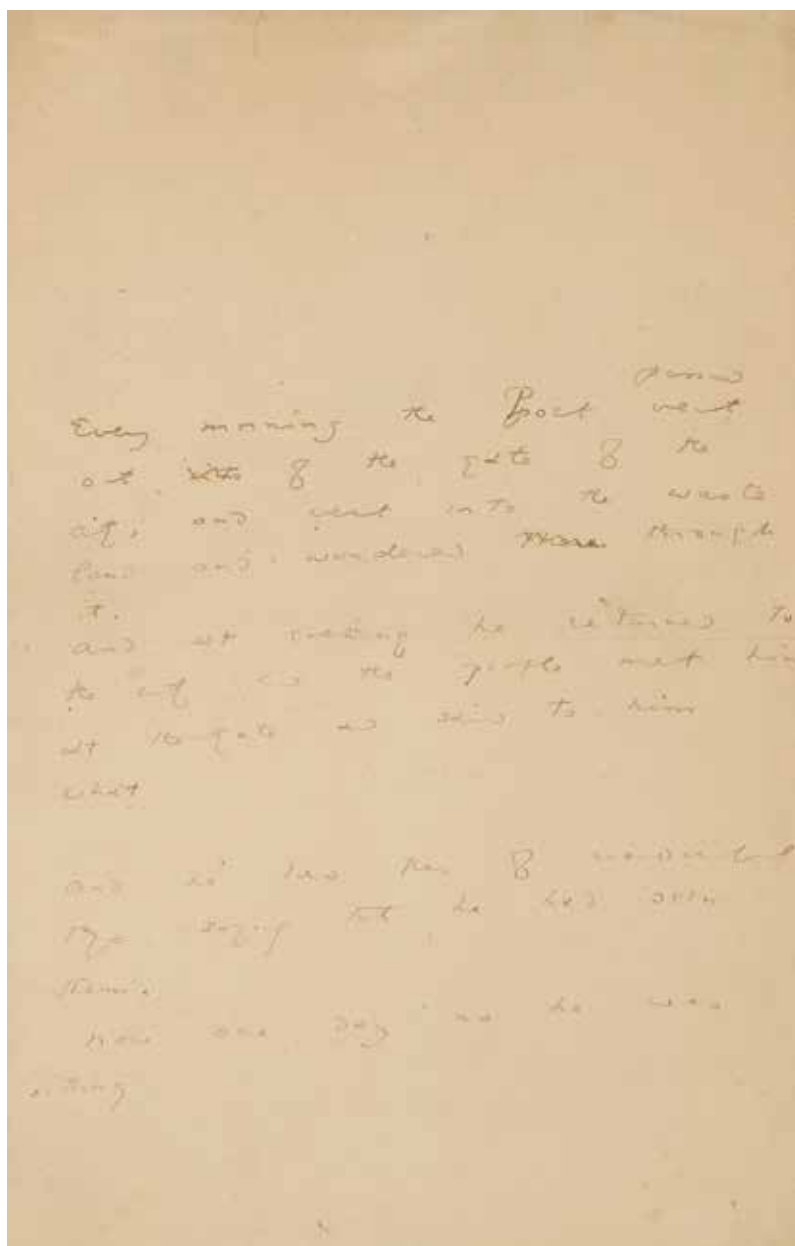 passed
Every morning the Poet went
out into of the gate of the
city, and went into the waste
land and wandered there through
it.
and at evening he returned to
the city and the people met him
at the gate and said to him
what
and he told them of wonderful
things saying that he had seen
them.
now one day as he was
sitting